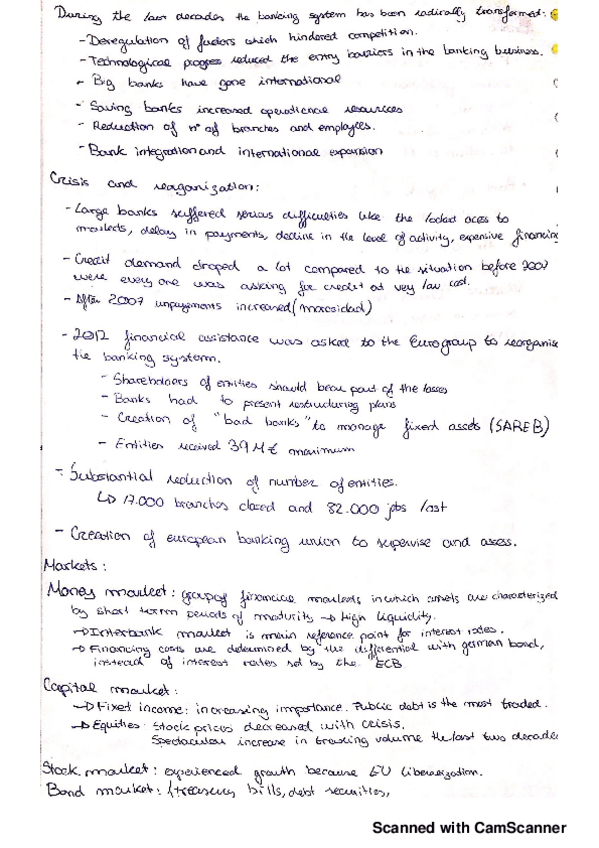 During the last decades the banking system has been radically transformed:
- Deregulation of factors which hindered competition.
- Technological progres reduced the entry barriers in the banking business.
- Big banks have gone international
- Saving banks increased operational resources
- Reduction of nº of branches and employees.
- Bank integration and international expansion
Crisis and reorganization:
- Large banks suffered serious difficulties like the locked aces to
markets, delay in payments, decline in the level of activity, expensive financing
- Credit demand droped a lot compared to the situation before 2007
were every one was asking for credit at vey low cost.
- After 2007 unpayments increased (morosidad)
- 2012 financial assistance was asked to the Eurogroup to reorganise
the banking system.
- Shareholders of entities should bear part of the losses
- Banks had to present restructuring plans
- Creation of "bad banks" to manage fixed assets (SAREB)
- Entities received 39 M€ maximum
- Substantial reduction of number of entities.
↳ 17.000 branches closed and 82.000 jobs lost
- Creation of european banking union to supervise and assess.
Markets:
Money market: group of financial markets in which assets are characterized
by short term periods of maturity → High liquidity.
→ Interbank market is main reference point for interest rates.
→ Financing costs are determined by the differential with german bond,
instead of interest rates set by the ECB
Capital market:
→ Fixet income: increasing importance. Public debt is the most traded.
→ Equities: Stock prices decreased with crisis.
Spectacular increase in trading volume the last two decades
Stock market: experienced growth because EU liberalization.
Bond market: (treasury bills, debt securities,
Scanned with CamScanner